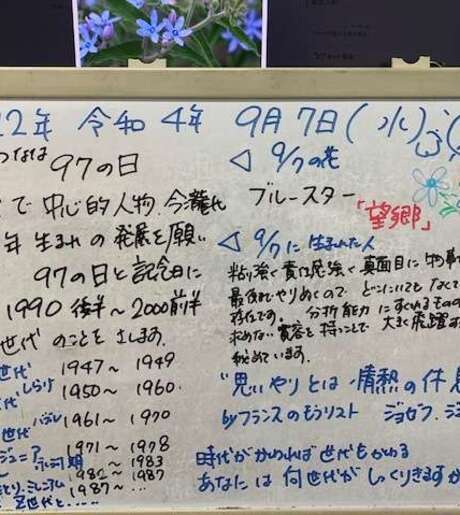 22年 令和 4年 9月 7日 (水)
97の日
で 中心的人物. 今
年 生まれ の 発展を 願い
97の日と 記念日に
1990 後半 ~ 2000前半
世代 のことを さします.
世代 1947 ~ 1949
しらけ 1950 ~ 1960.
世代 バブル 1961 ~ 1970
ジュニア 1971 ~ 1978
氷河期 ~ 1983
1982 ~ 1987
ミレニアム 1987 ~ ...
Z世代と.....
◁ 9/7の花
ブルースター
「望郷」
◁ 9/7に 生まれた人
粘り強く 責任感強く 真面目に
最後までやりぬくので どこにいても なくて
存在です. 分析能力 にすぐれるもの
求めない 寛容を 持つことで 大きく 飛躍
秘めています.
"思いやりとは 情熱の休息
byフランスのモラリスト ジョゼフ、ジ
時代がかわれば 世代もかわる
あなたは 何世代が しっくりきますか